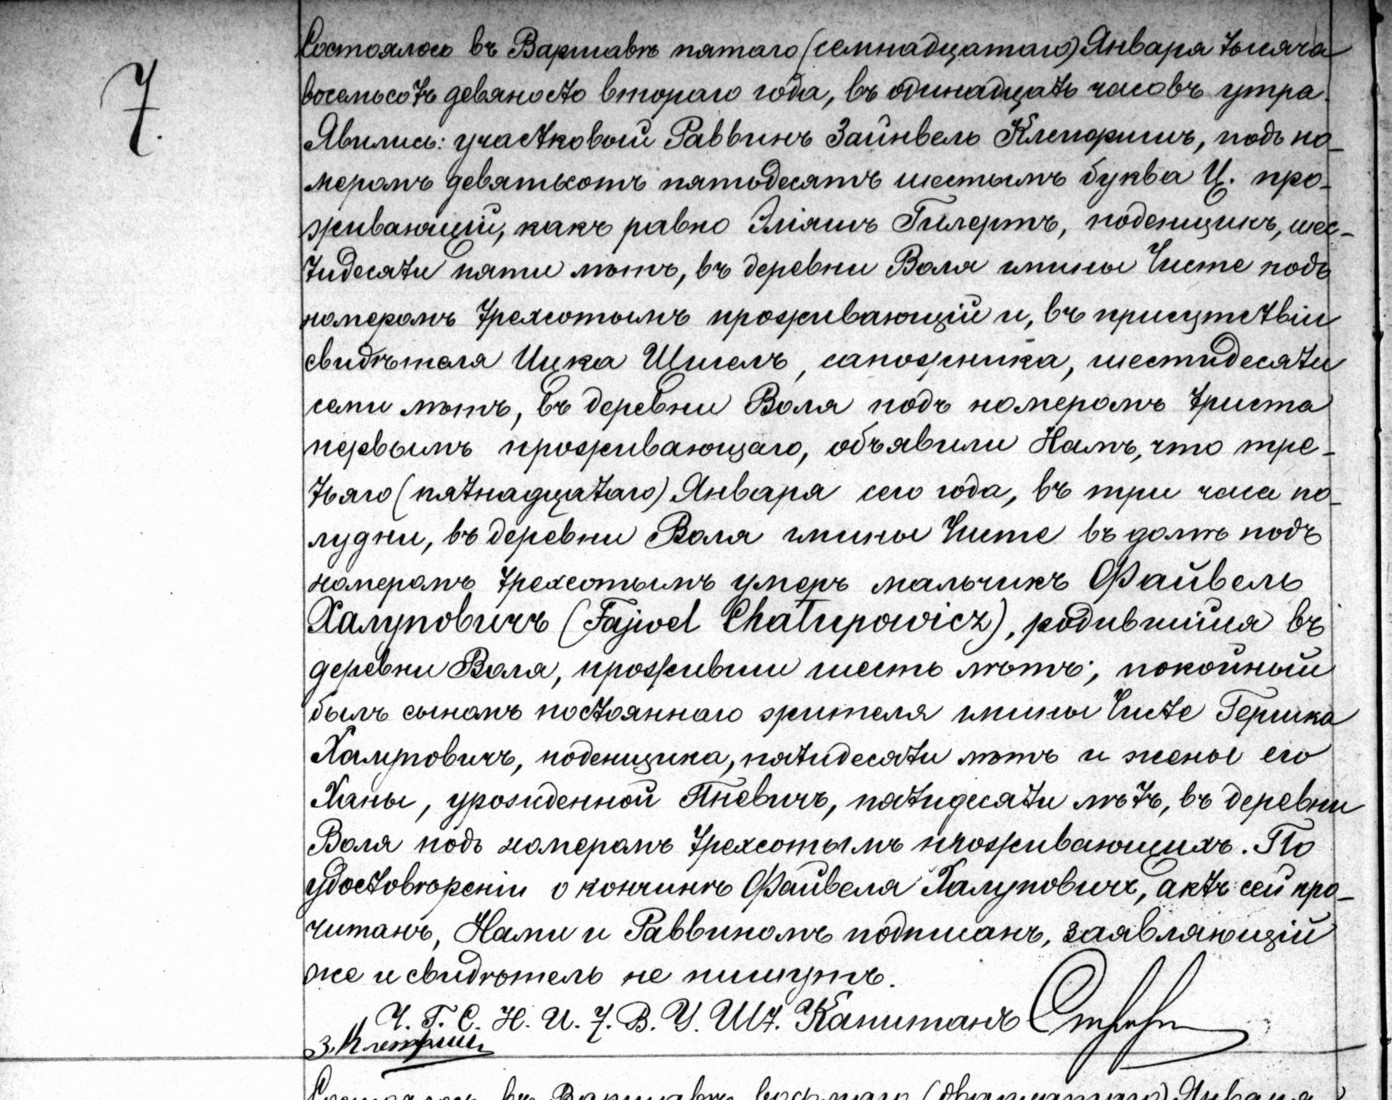 7.
Состоялось въ Варшавѣ пятаго (семнадцатаго) Января тысяча
восемьсотъ девяносто втораго года, въ одинадцать часовъ утра.
Явились: участковый Раввинъ Зайнвель Клепфишъ, подъ но-
меромъ девятьсотъ пятьдесятъ шестымъ буква Ц. про-
живающій, какъ равно Эліяшъ Гилертъ, поденщикъ, шес-
тидесяти пяти лѣтъ, въ деревни Воля гмины Чисте подъ
номеромъ трехсотымъ проживающій и, въ присутствіи
свидѣтеля Ицка Шигелъ, сапожника, шестидесяти
семи лѣтъ, въ деревни Воля подъ номеромъ триста
первымъ проживающаго, объявили Намъ, что тре-
тьяго (пятнадцатаго) Января сего года, въ три часа по-
лудни, въ деревни Воля гмины Чисте въ домѣ подъ
номеромъ трехсотымъ умеръ мальчикъ Файвель
Халуповичъ (Fajwel Chałupowicz), родившійся въ
деревни Воля, проживши шесть лѣтъ; покойный
былъ сыномъ постояннаго жителя гмины Чисте Гершка
Халуповичъ, поденщика, пятидесяти лѣтъ и жены его
Ханы, урожденной Пневичъ, пятидесяти лѣтъ, въ деревни
Воля подъ номеромъ трехсотымъ проживающихъ. По
удостовѣреніи о кончинѣ Файвеля Халуповичъ, актъ сей про-
читанъ, Нами и Раввиномъ подписанъ, заявляющій
же и свидѣтель не пишутъ.
Ч. Г. С. Н. И. 7. В. У. Шт. Капитанъ
З. Клепфишъ
Состоялось въ Варшавѣ восьмаго (двадцатаго) Января